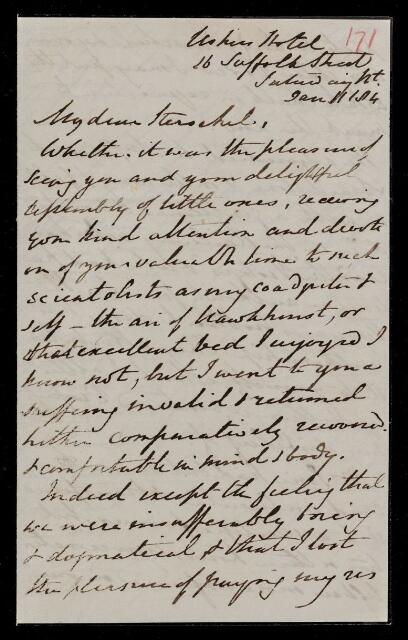 171
Hotel
16 Suffolk Street
Saturday nt.
Jan 11 184
My dear Herschel,
Whether it was the pleasure of
seeing you and your delightful
assembly of little ones, receiving
your kind attention and devote
on of your valuable time to such
as my coadjutor &
self – the air of Hawkhurst, or
that excellent bed I enjoyed I
know not, but I went to you a
suffering invalid & returned
hither comparatively recovered
& comfortable in mind & body.
Indeed except the feeling that
we were insufferably boring
& dogmatical & that I lost
the pleasure of paying my res